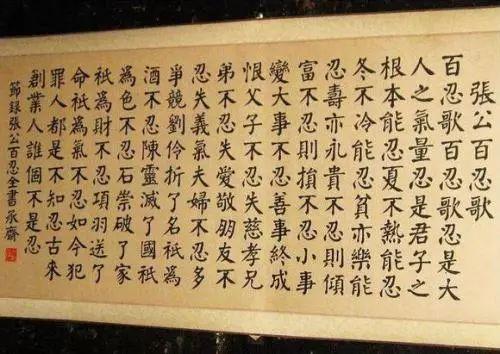 張公百忍歌
百忍歌百忍歌忍是大
人之氣量忍是君子之
根本能忍夏不熱能忍
冬不冷能忍貧亦樂能
忍壽亦永貴不忍則傾
富不忍則損不忍小事
變大事不忍善事終成
恨父子不忍失慈孝兄
弟不忍失愛敬朋友不
忍失義氣夫婦不忍多
爭競劉伶折了名祇爲
酒不忍陳靈滅了國祇
爲色不忍石崇破了家
祇爲財不忍項羽送了
命祇爲氣不忍如今犯
罪人都是不知忍古來
創業人誰個不是忍
節録張公百忍全書承齋